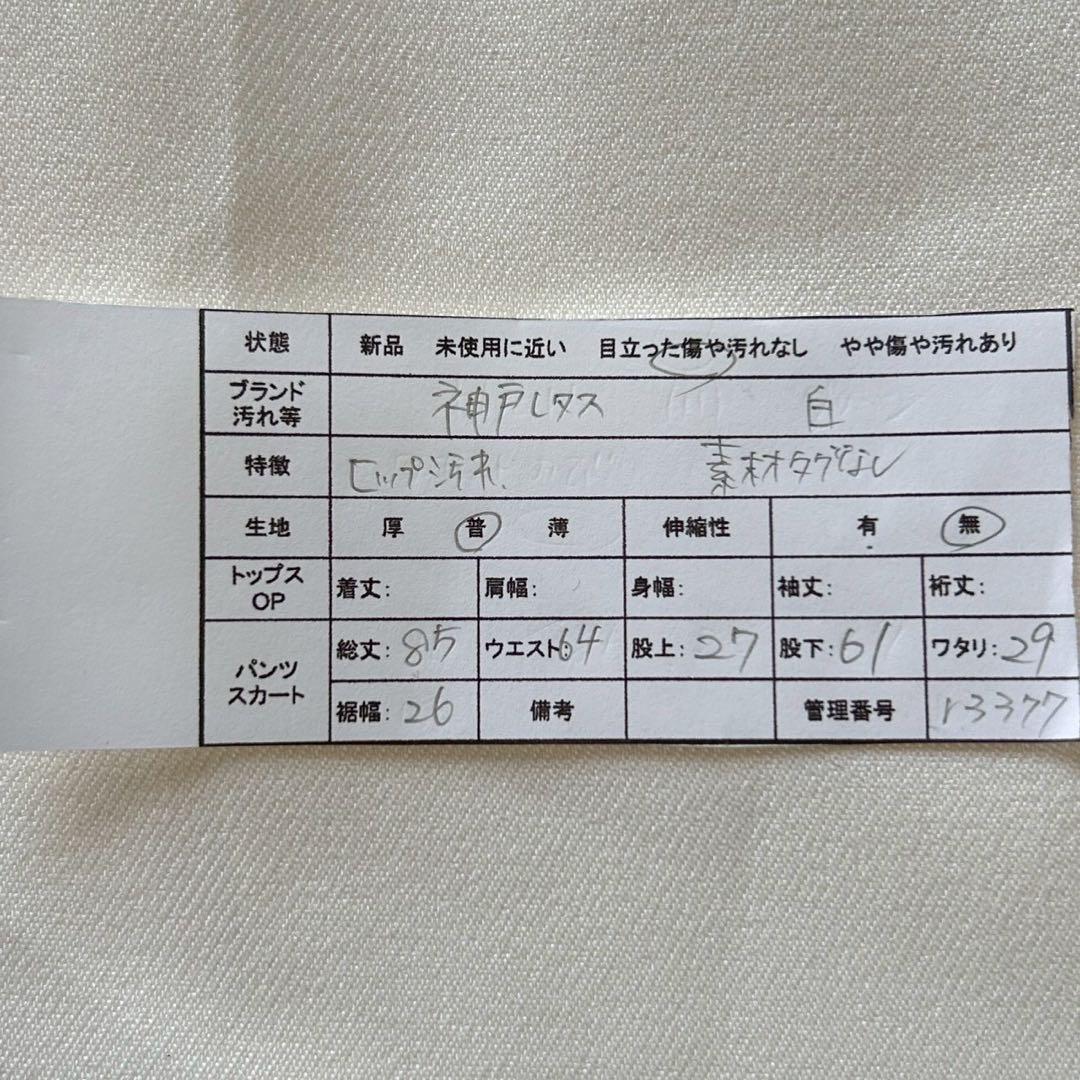 状態 新品 未使用に近い 目立った傷や汚れなし やや傷や汚れあり
ブランド 汚れ等 神戸レタス 白
特徴 ヒップ汚れ、 素材タグなし
生地 厚 普 薄 伸縮性 有 無
トップス OP 着丈: 肩幅: 身幅: 袖丈: 裄丈:
パンツ スカート 総丈: 85 ウエスト: 64 股上: 27 股下: 61 ワタリ: 29
裾幅: 26 備考 管理番号 r3377